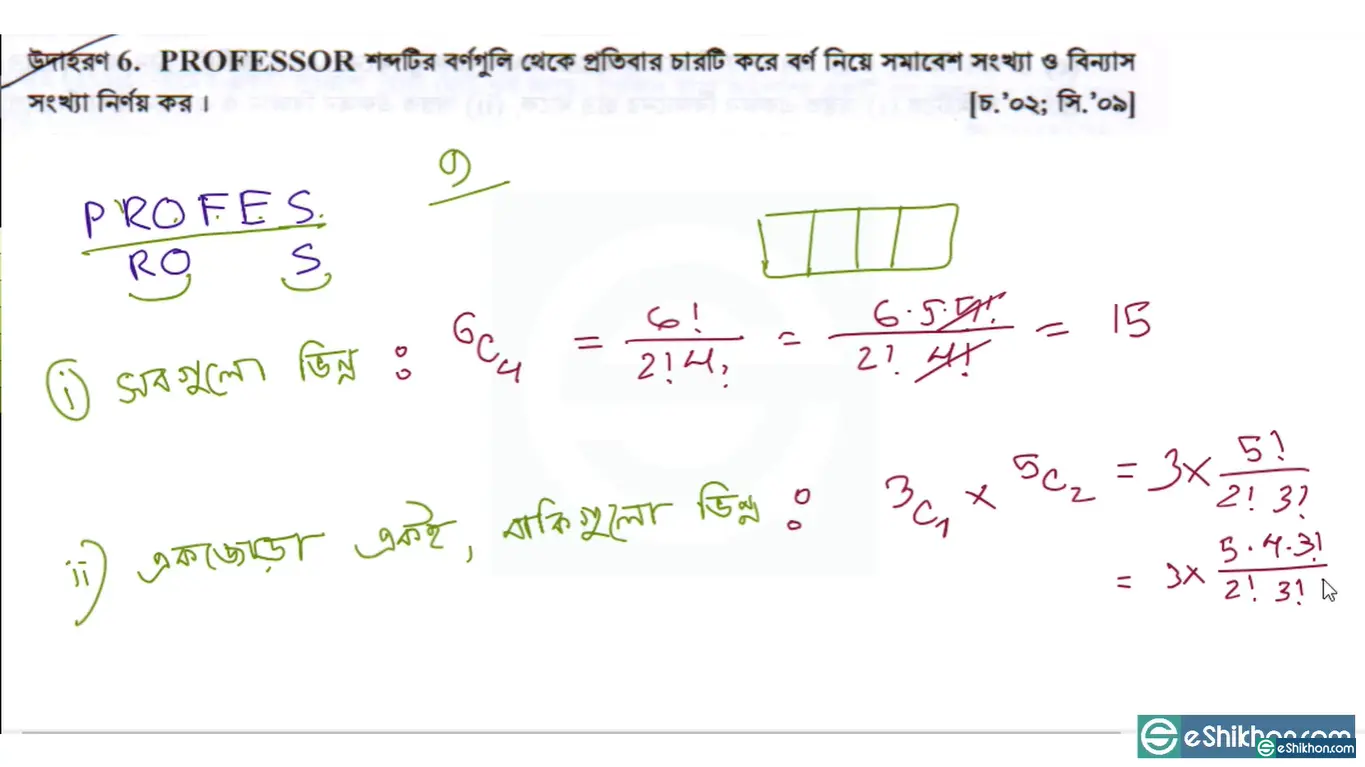 উদাহরণ 6. PROFESSOR শব্দটির বর্ণগুলি থেকে প্রতিবার চারটি করে বর্ণ নিয়ে সমাবেশ সংখ্যা ও বিন্যাস
সংখ্যা নির্ণয় কর। [চ.'০২; সি.'০৯]
৩
PROFES
RO S
i) সবগুলো ভিন্ন : ⁶C₄ = 6!/2!4! = 6·5·4!/2! 4! = 15
ii) একজোড়া একই, বাকিগুলো ভিন্ন : ³C₁ × ⁵C₂ = 3× 5!/2! 3!
= 3× 5·4·3!/2! 3!
eShikhon.com
eShikhon.com